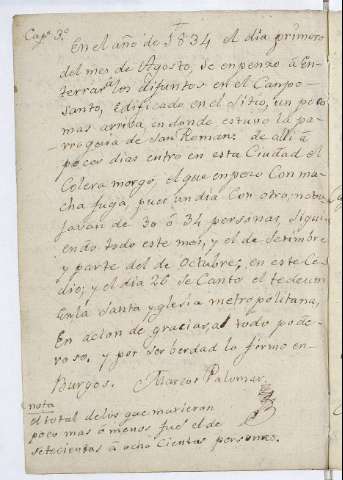 Capº 3º
En el año de 1834 el dia primero
del mes de Agosto, se enpenzo á en-
terrar a los difuntos en el Canpo-
Santo, Edificado en el Sitio, un poco
mas arriba, en donde estuvo la pa-
rroquia de San Roman: de alli á
pocos dias entro en esta Ciudad el
Colera morgo, el que enpezo Con mu-
cha fuga, pues un dia Con otro, no
bajavan de 30 ó 34 personas, Sigui-
endo todo este mes, y el de Setimbre
y parte del de Octubre; en este Ce-
dio; y el dia 26 se Canto el tedeum
En la Santa yglesia metropolitana,
En acion de gracias, al todo pode-
roso. y por ser berdad lo firmo en-
Burgos. Marcos Palomar,
nota
el total de los que murieron
poco mas ó menos fue el de
setecientas á ocho Cientas personas.